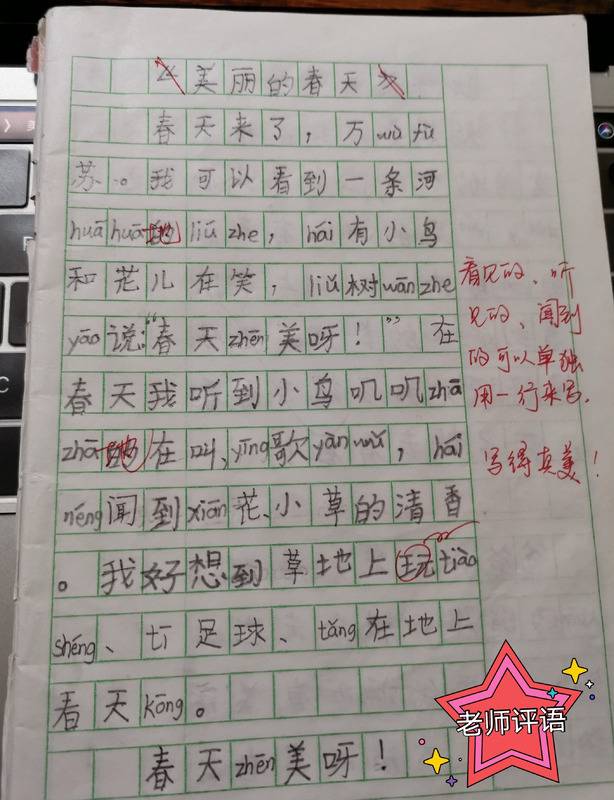 《美丽的春天》
春天来了，万wù fù
苏。我可以看到一条河
huā huā地liú zhe，hái有小鸟
和花儿在笑，liǔ树wān zhe
yāo说："春天zhēn美呀！"在
春天我听到小鸟叽叽zhā
zhā地在叫、yīng歌yàn wǔ，hái
néng闻到xiān花、小草的清香
。我好想到草地上玩tiào
shéng、tī足球、tǎng在地上
看天kōng。
春天zhēn美呀！
看见的、听
见的、闻到
的可以单独
用一行来写.
写得真美！
老师评语